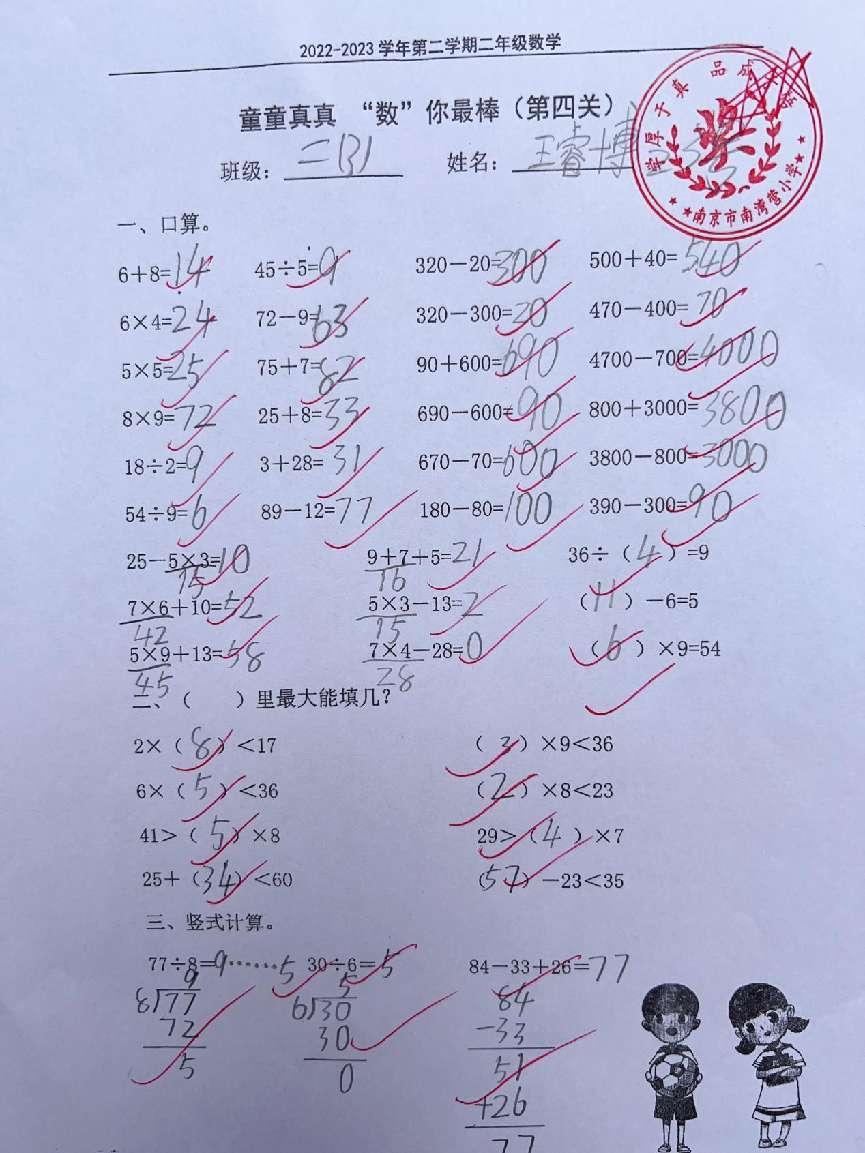 2022-2023 学年第二学期二年级数学
童童真真 “数”你最棒（第四关）
班级：二(3) 姓名：王睿博
南京市南湾营小学
一、口算。
6+8=14 45÷5=9 320－20=300 500＋40=540
6×4=24 72－9=63 320－300=20 470－400=70
5×5=25 75＋7=82 90＋600=690 4700－700=4000
8×9=72 25＋8=33 690－600=90 800＋3000=3800
18÷2=9 3＋28=31 670－70=600 3800－800=3000
54÷9=6 89－12=77 180－80=100 390－300=90
25－5×3=10 9＋7＋5=21 36÷（4）=9
15 16
7×6＋10=52 5×3－13=2 （11）－6=5
42 15
5×9＋13=58 7×4－28=0 （6）×9=54
45 28
二、（ ）里最大能填几？
2×（8）＜17 （3）×9＜36
6×（5）＜36 （2）×8＜23
41＞（5）×8 29＞（4）×7
25＋（34）＜60 （57）－23＜35
三、竖式计算。
77÷8=9……5 30÷6=5 84－33＋26=77
9 5 84
8 77 6 30 -33
72 30 51
5 0 +26
77